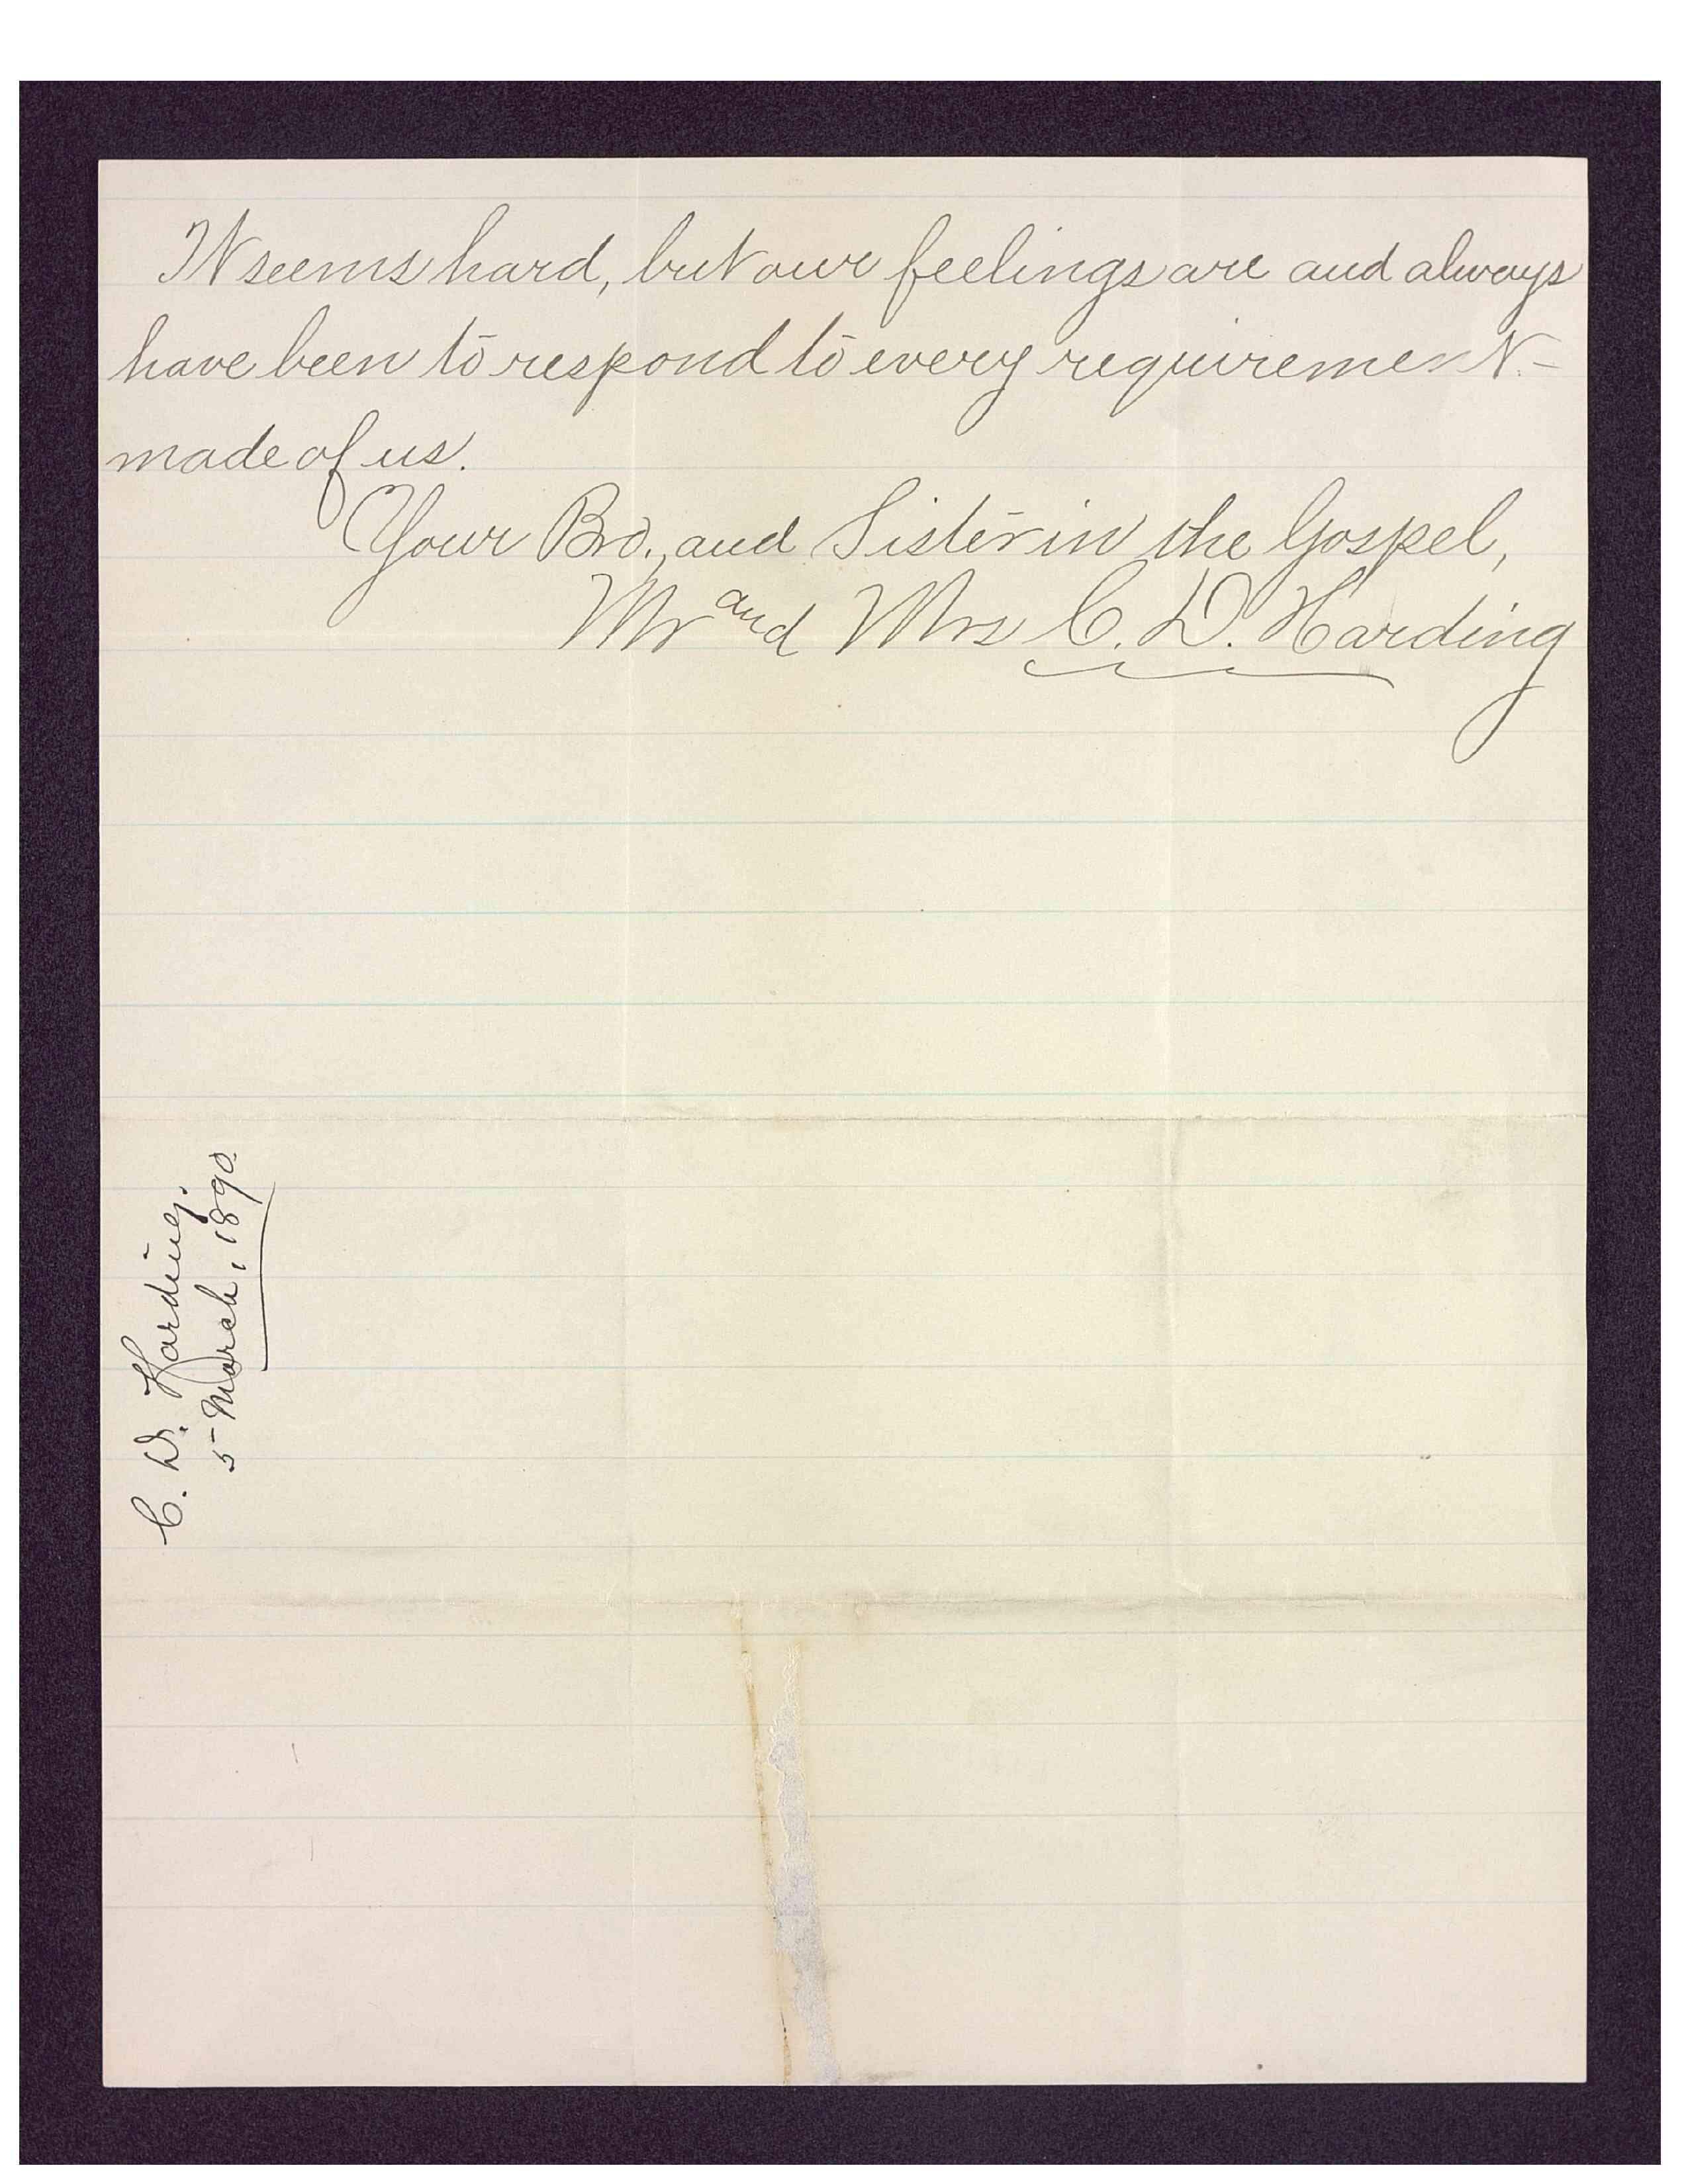 It seems hard, but our feelings are and always
have been to respond to every requirement-
made of us.
Your Bro., and Sister in the Gospel,
Mr and Mrs C. D. Harding
C. D. Harding.
5 March, 1890